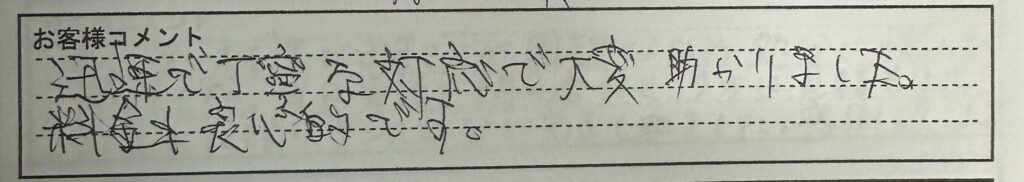 お客様コメント
迅速で丁寧な対応で大変助かりました。
料金も良心的です。